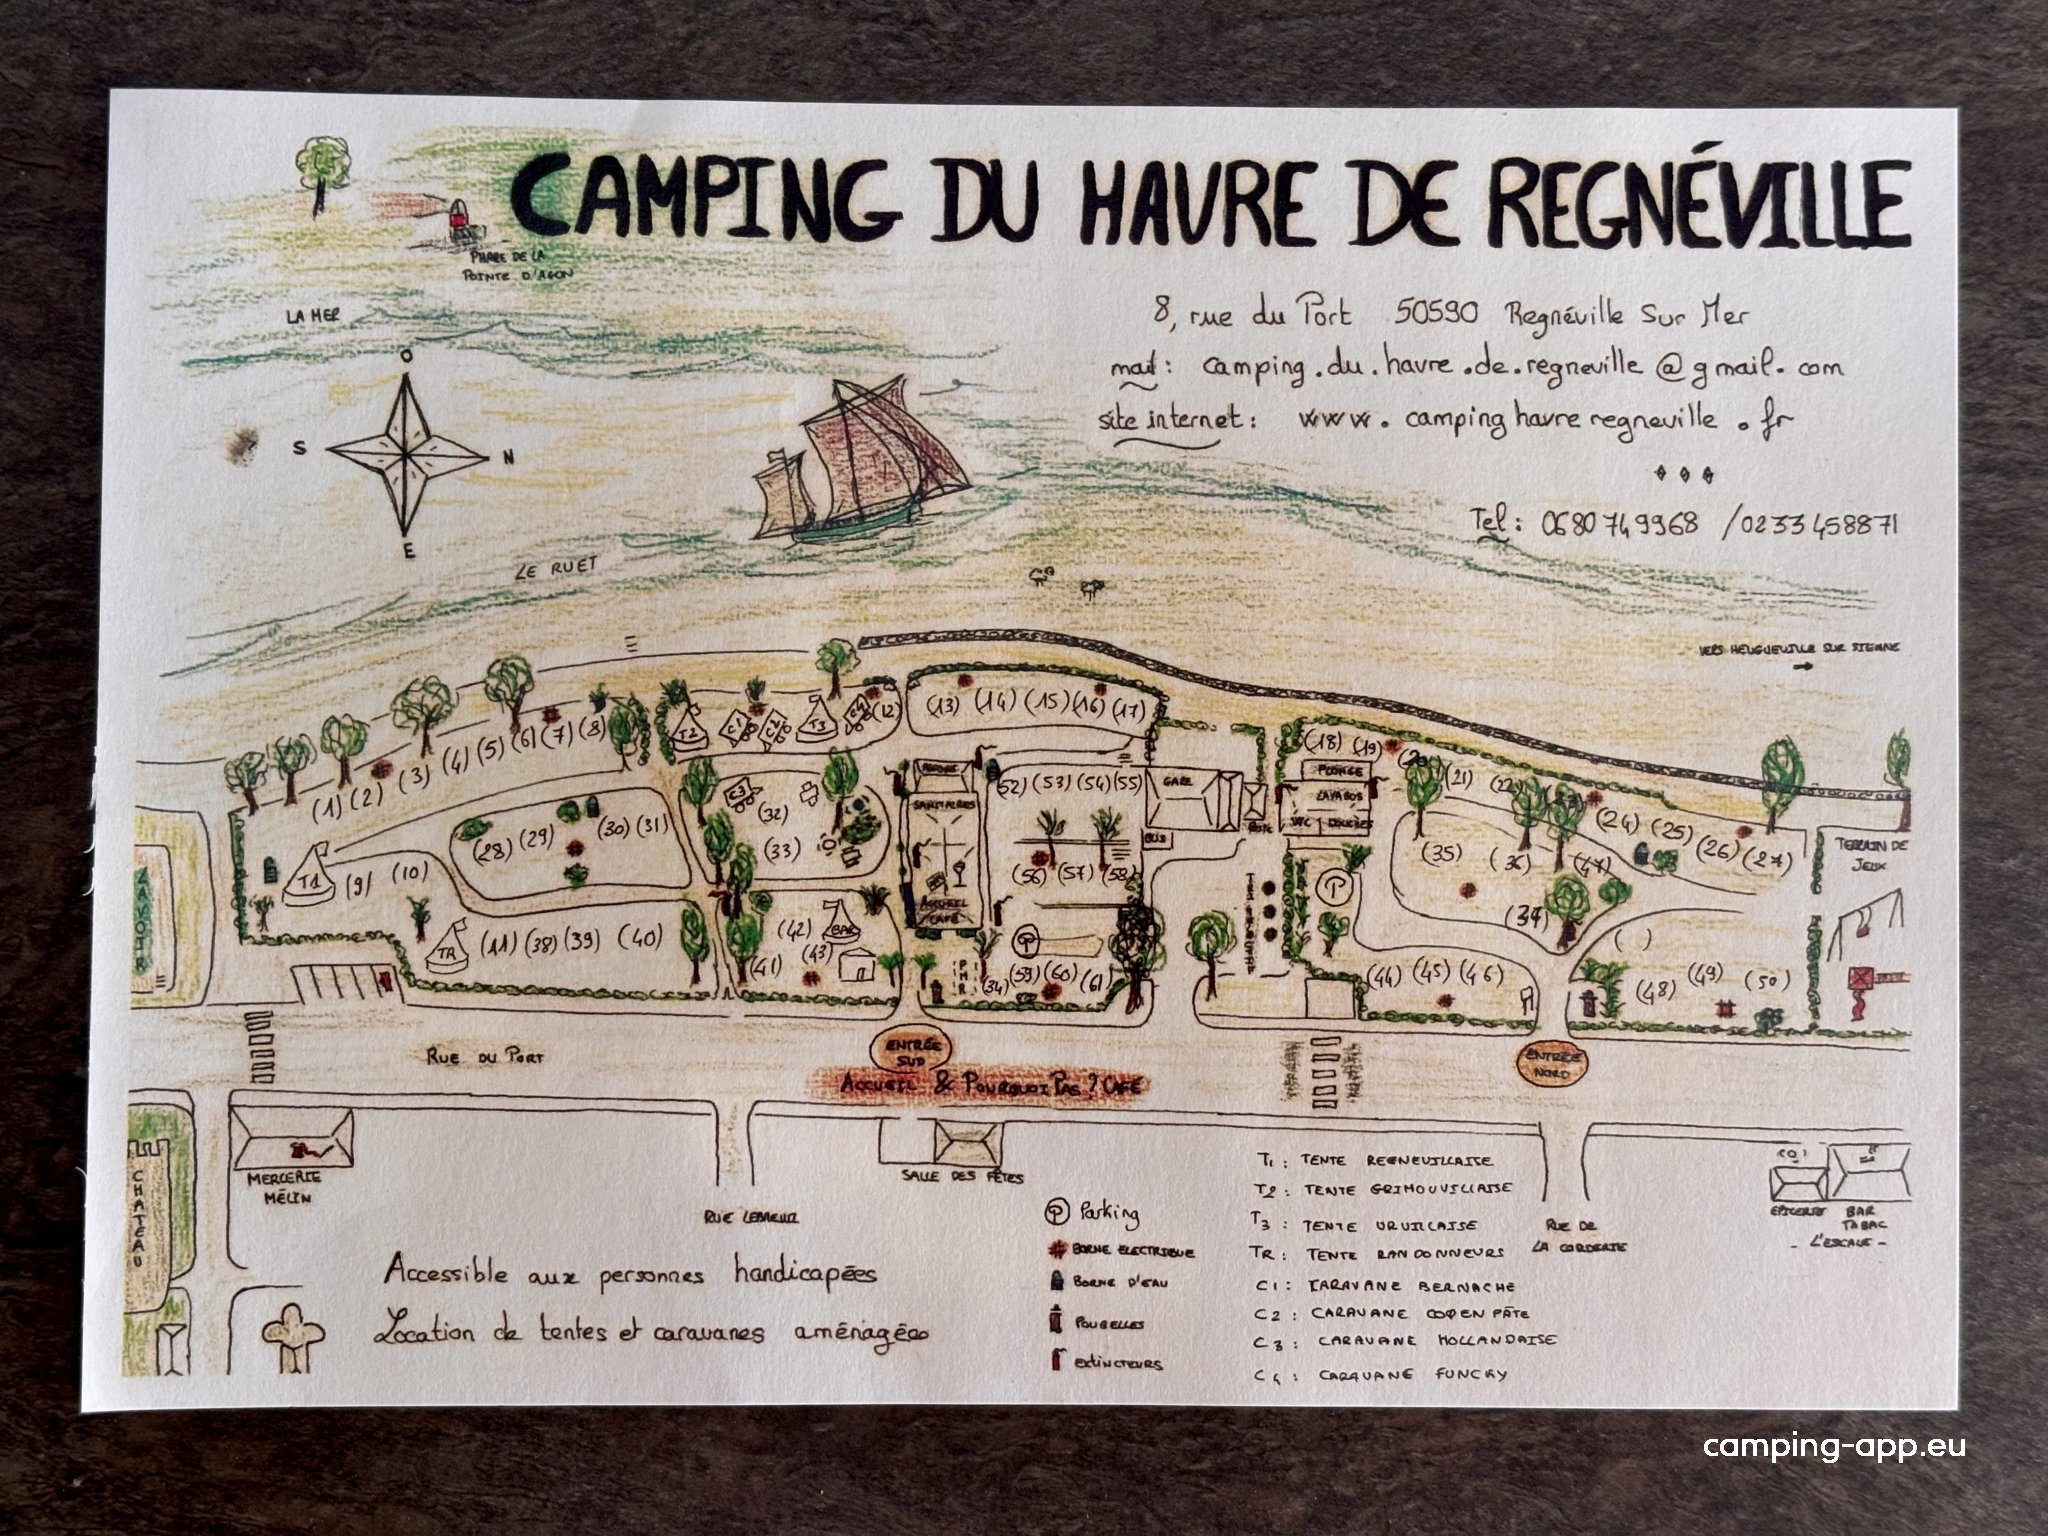 CAMPING DU HAVRE DE REGNÉVILLE
PHARE DE LA
POINTE D'AGON
LA MER
8, rue du Port 50590 Regnéville Sur Mer
mail : camping.du.havre.de.regneville@gmail.com
site internet : www.camping havre regneville.fr
Tel : 0680749968 / 0233458871
O
S
N
E
LE RUET
VERS HEUGUEVILLE SUR SIENNE
(1) (2) (3) (4) (5) (6) (7) (8)
T2 C1 C2 T3 C4 (12)
(13) (14) (15) (16) (17)
(18) (19) (20) (21) (22) (23) (24) (25) (26) (27)
TERRAIN DE
JEUX
LAVOIR
T1 (9) (10)
(28) (29) (30) (31)
C3 (32)
(33)
SANITAIRES
ACCUEIL
CAFÉ
(52) (53) (54) (55)
GARE
BUS
PLONGE
LAVABOS
WC DOUCHES
(56) (57) (58)
P
(35) (36) (47)
(37)
TR (11) (38) (39) (40)
(41) (42) (43)
BAR
PMR
P
(34) (59) (60) (61)
(44) (45) (46)
( )
(48) (49) (50)
RUE DU PORT
ENTRÉE
SUD
ACCUEIL & POURQUOI PAS ? CAFÉ
ENTRÉE
NORD
CHATEAU
MERCERIE
MÉLIN
RUE LEBREUR
SALLE DES FÊTES
RUE DE
LA CORDERIE
EPICERIE
BAR
TABAC
- L'ESCALE -
Accessible aux personnes handicapées
Location de tentes et caravanes aménagées
P Parking
BORNE ELECTRIQUE
BORNE D'EAU
POUBELLES
EXTINCTEURS
T1 : TENTE REGNEVILLAISE
T2 : TENTE GRIMOUVILLAISE
T3 : TENTE URVILLAISE
TR : TENTE RANDONNEURS
C1 : CARAVANE BERNACHE
C2 : CARAVANE COQ EN PÂTE
C3 : CARAVANE HOLLANDAISE
C4 : CARAVANE FUNCKY
camping-app.eu